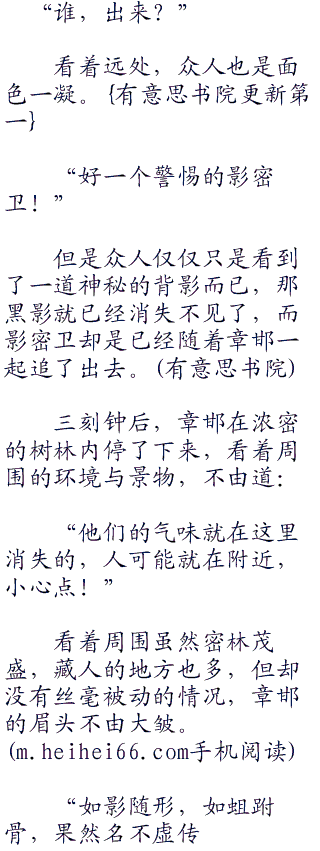 “谁，出来？”
看着远处，众人也是面
色一凝。{有意思书院更新第
一}
“好一个警惕的影密
卫！”
但是众人仅仅只是看到
了一道神秘的背影而已，那
黑影就已经消失不见了，而
影密卫却是已经随着章邯一
起追了出去。(有意思书院)
三刻钟后，章邯在浓密
的树林内停了下来，看着周
围的环境与景物，不由道：
“他们的气味就在这里
消失的，人可能就在附近，
小心点！”
看着周围虽然密林茂
盛，藏人的地方也多，但却
没有丝毫被动的情况，章邯
的眉头不由大皱。
(m.heihei66.com手机阅读)
“如影随形，如蛆跗
骨，果然名不虚传